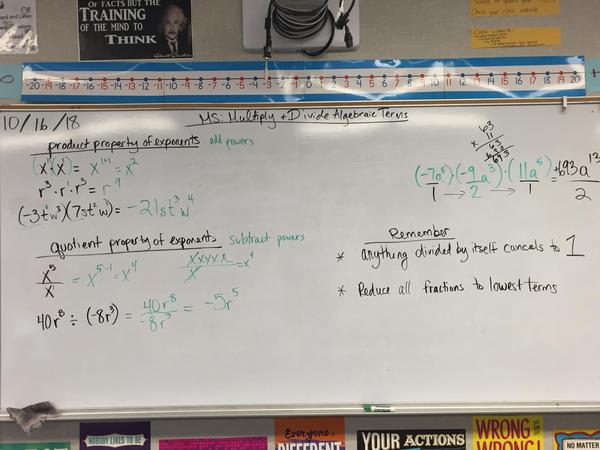 OF FACTS BUT THE
TRAINING
OF THE MIND TO
THINK
Check your class website
-20 -19 -18 -17 -16 -15 -14 -13 -12 -11 -10 -9 -8 -7 -6 -5 -4 -3 -2 -1 0 1 2 3 4 5 6 7 8 9 10 11 12 13 14 15 16 17 18 19 20
10/16/18
MS: Multiply + Divide Algebraic Terms
product property of exponents add powers
(x¹·x¹) = x¹⁺¹ = x²
r³·r¹·r⁵ = r⁹
(-3t²w³)(7st²w¹) = -21st³w⁴
63
11
x
63
693
(-7a⁵)/1 · (-9a³)/2 · (11a⁵)/1 = +693a¹³/2
quotient property of exponents subtract powers
x⁵/x¹ = x⁵⁻¹ = x⁴
xxxxx/x = x⁴
40r⁸ ÷ (-8r³) = 40r⁸/-8r³ = -5r⁵
Remember
* anything divided by itself cancels to 1
* Reduce all fractions to lowest terms
NOBODY LIKES TO BE
Everyone is
DIFFERENT
YOUR ACTIONS
WRONG
WRONG!
NO MATTER